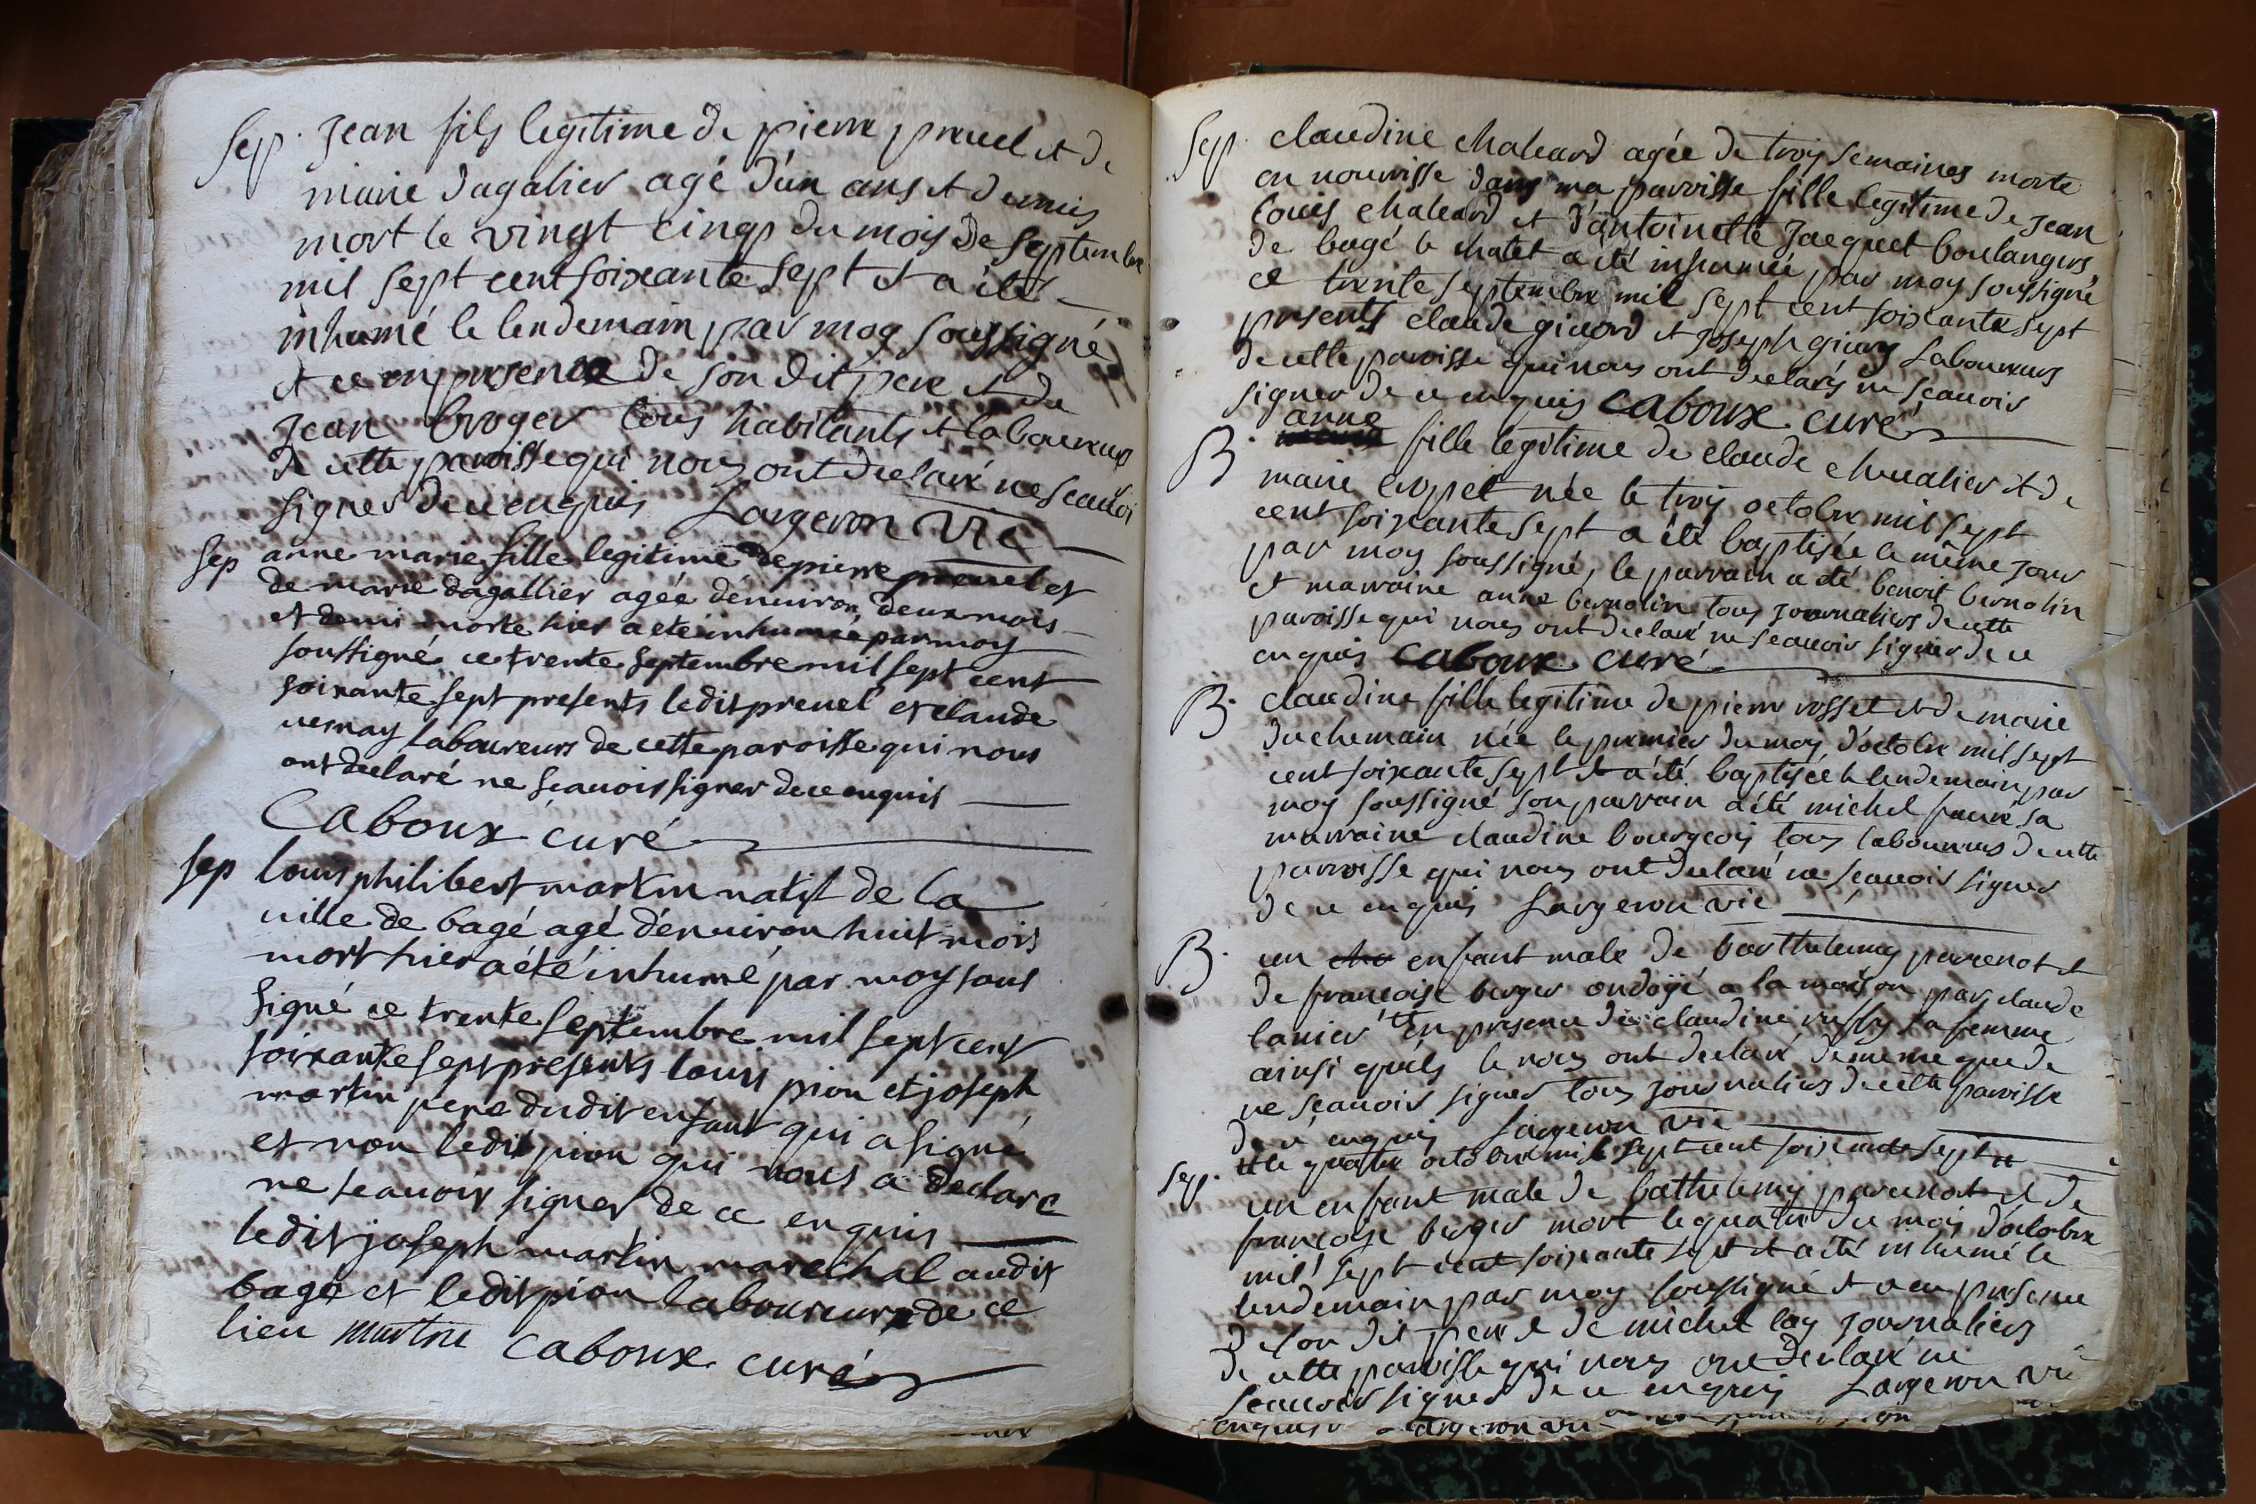 Sep. Jean fils legitime de pierre preuel et de
marie dagalier agé d'un ans et demis
mort le vingt cinqs du mois de septembre
mil sept cent soixante sept et a été
inhumé le lendemain par moy soussigné
et ce en presence de son dit pere et du
Jean broyer tous habitants et laboureurs
de cette paroisse qui nous ont declaré ne scauoi
signer de ce enquis Largeron vic
Sep anne marie fille legitime de pierre preuel et
de marie dagallier agée d'enuiron deux mois
et demi morte hier a eté inhumée par moy
soussigné ce trente septembre mil sept cent
soixante sept presents ledit preuel et claude
uernay laboureurs de cette paroisse qui nous
ont declaré ne scauoir signer de ce enquis
Caboux curé
Sep louis philibert martin natif de la
uille de bagé agé d'enuiron huit mois
mort hier a été inhumé par moy sous
signé ce trente septembre mil sept cent
soixante sept presents louis pion et joseph
martin pere dudit enfant qui a signé
et non ledit pion qui nous a declare
ne scauoir signer de ce enquis
ledit joseph martin marechal audit
bagé et ledit pion laboureur de ce
lieu martin Caboux curé
Sep. claudine chaleard agée de troy semaines morte
en nourrisse dans ma parroisse fille legitime de Jean
Louis chaleard et d'antoinette Jacquet boulangers
de bagé le chatel a été inhumée par moy soussigné
ce trente septembre mil sept cent soixante sept
presents claude giuord et joseph giuors Laboureurs
de cette paroisse qui nous ont declarés ne scauoir
signer de ce enquis Caboux curé
anne
B. fille legitime de claude cheualier et de
marie louppet née le troy octobre mil sept
cent soixante sept a été baptisée le même jour
par moy soussigné, le parrain a été benoit bernolin
et marraine anne bernolin tous journaliers de cette
paroisse qui nous ont declaré ne scauoir signer de ce
enquis Caboux curé
B. claudine fille legitime de pierre rosset et de marie
duchemain née le premier du moy d'octobre mil sept
cent soixante sept et a été baptisée le lendemain par
moy soussigné son parrain a été michel faure sa
marraine claudine bourgeoy tous laboureurs de cette
parroisse qui nous ont declaré ne scauoir signer
de ce enquis Largeron vic
B. un enfant male de barthelemy perrenot et
de françoise berger ondoyé a la maison par claude
lanier tt en presence de claudine ruffy sa femme
ainsi qu'els le nous ont declaré de meme que de
ne scauoir signer tous journaliers de cette paroisse
de ce enquis Largeron vic
tt le quatre octobre mil sept cent soixante sept tt
Sep. un enfant male de bathelemy perrenot et de
françoise berger mort le quatre du mois d'octobre
mil sept cent soixante sept et a été inhumé le
lendemain par moy soussigné et ce en presence
de son dit pere et de michel lay journaliers
de cette paroisse qui nous ont declaré ne
scauoir signer de ce enquis Largeron vic